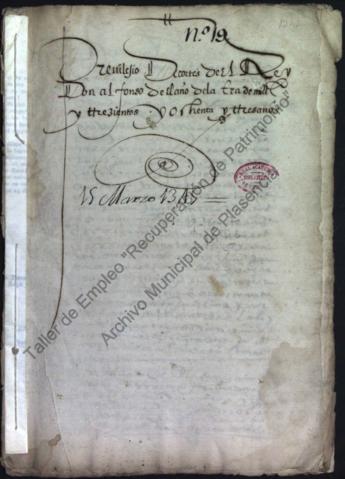 nº 19
Previlesio De cortes del Rey
Don alfonso del año de la era de mill
y trezientos y ochenta y tres años
15 Marzo 1345
Taller de Empleo "Recuperación de Patrimonio"
Archivo Municipal de Plasencia